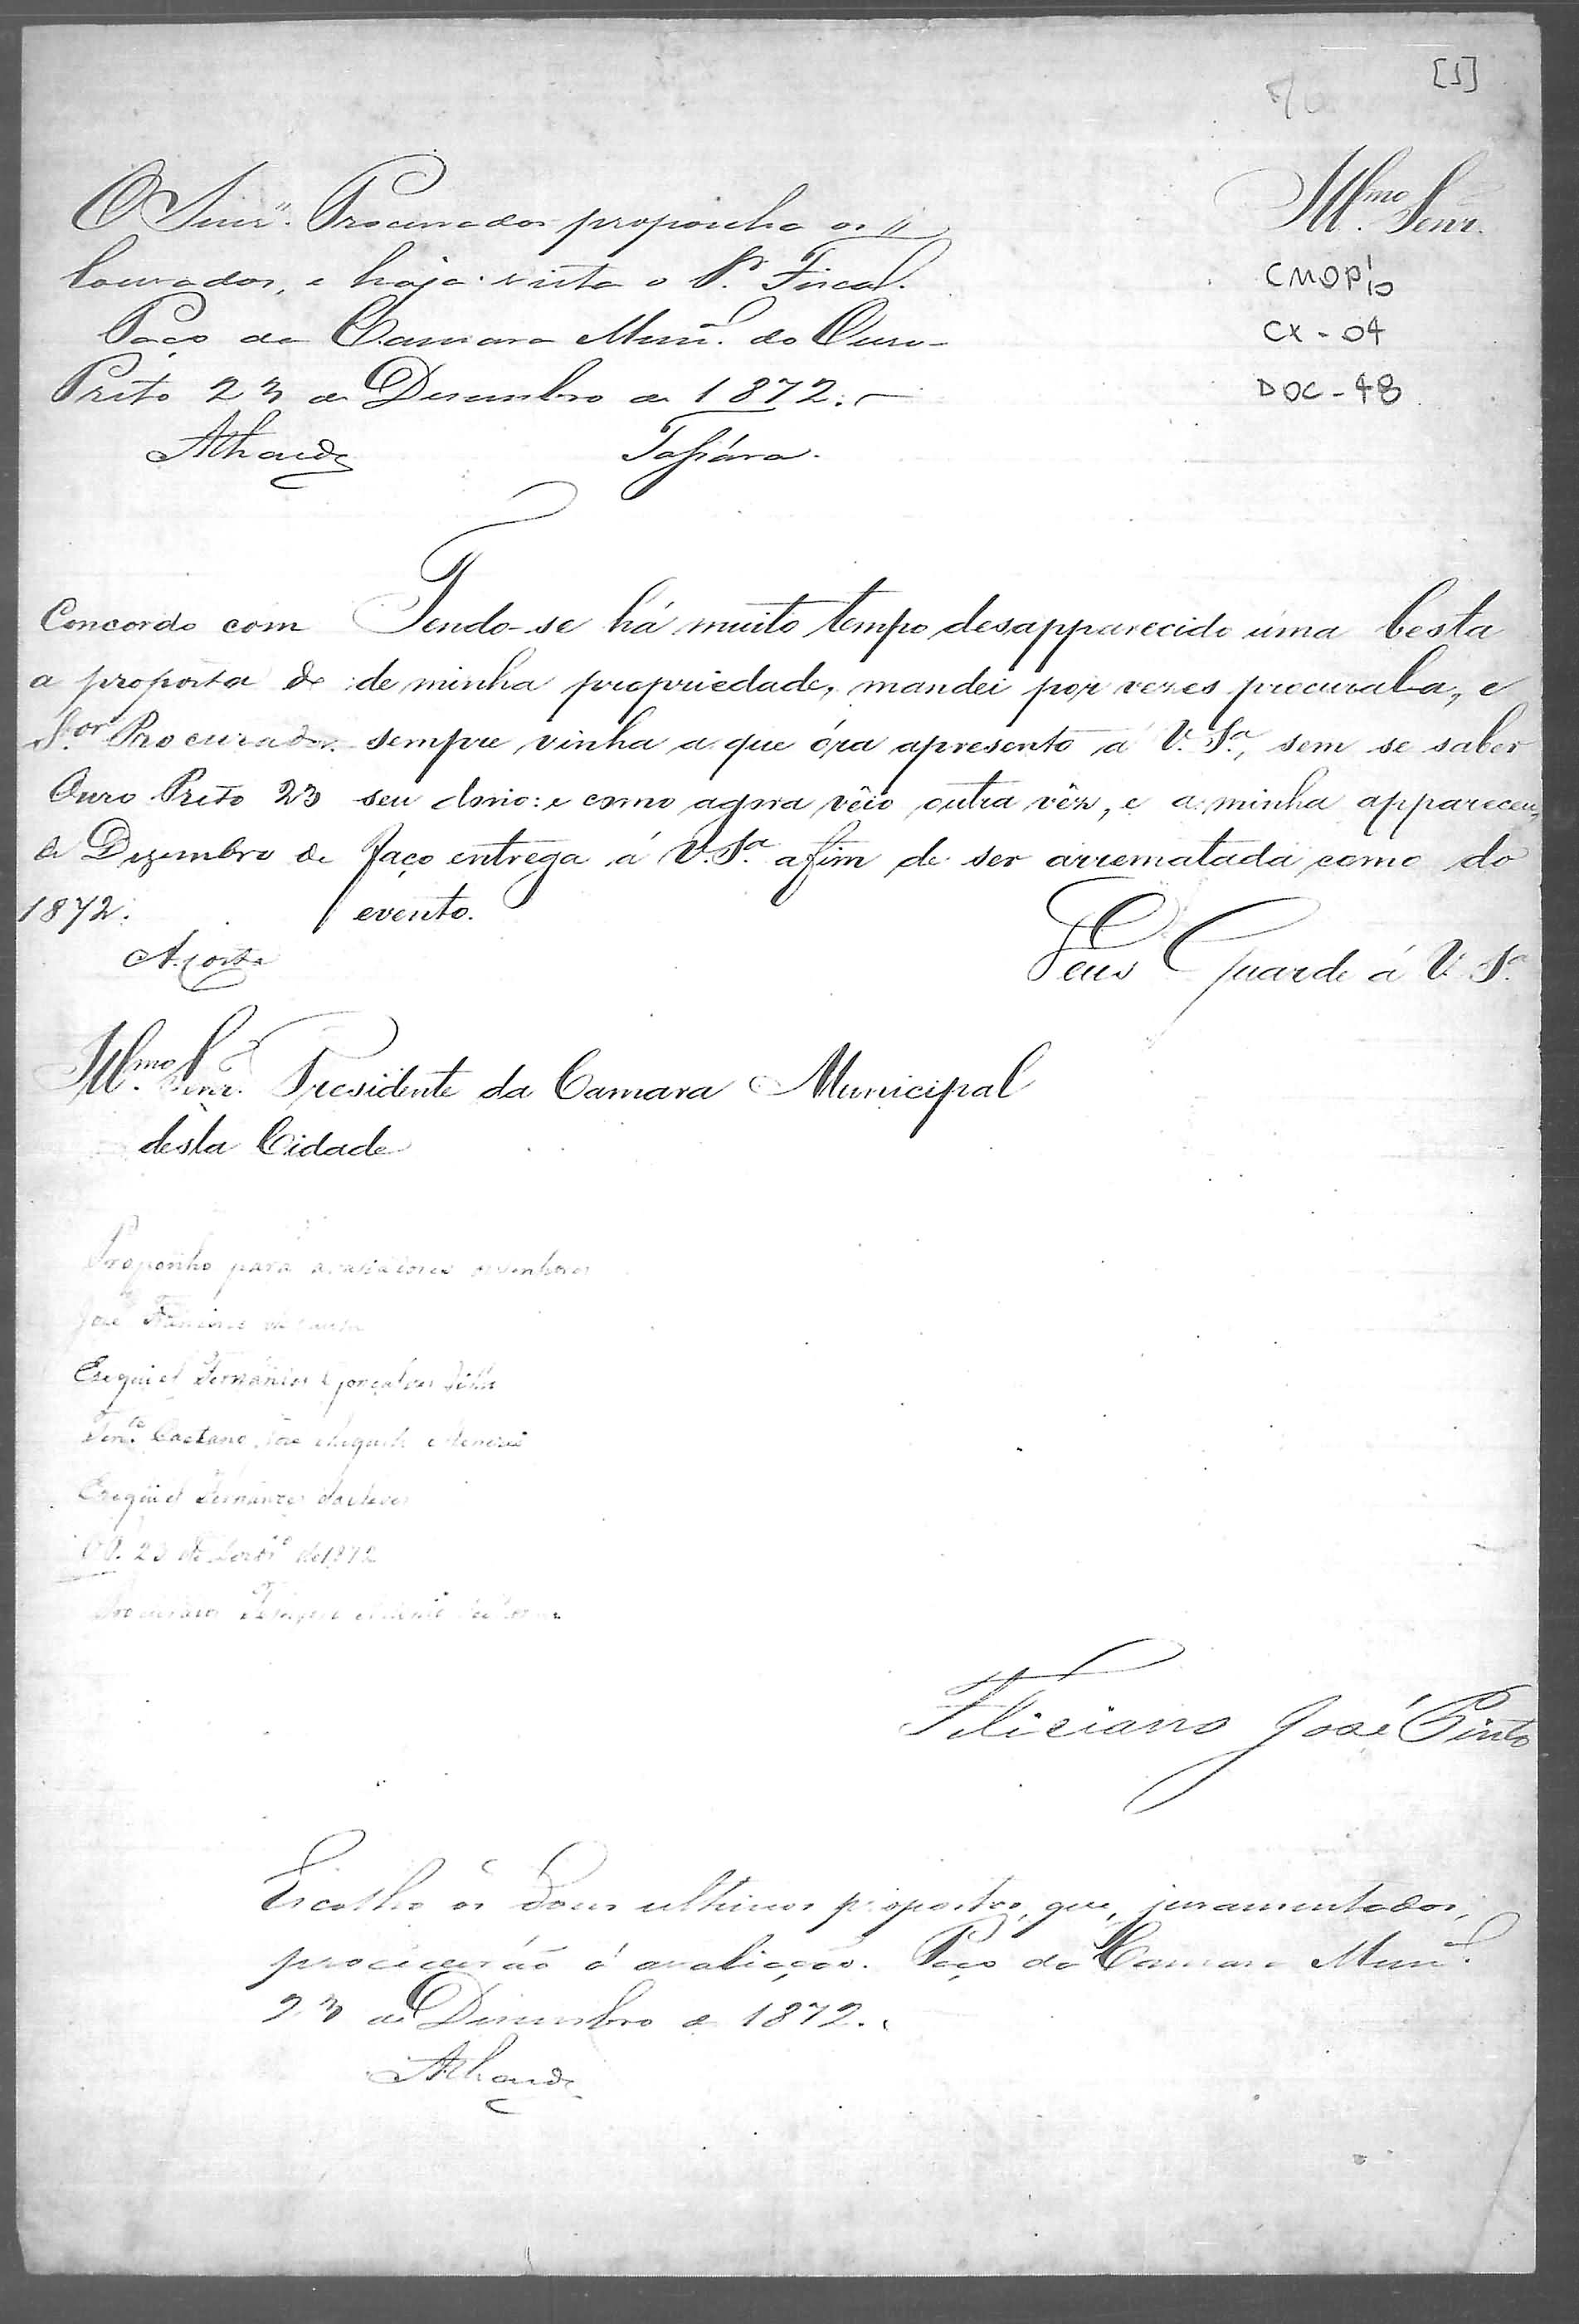 [1]
Illmo. Senr.
CMOP 1/10
CX - 04
DOC - 48
O Senr. Procurador proponha os
louvados, e haja vista o Sr. Fiscal.
Paço da Camara Mun. do Ouro-
Preto 23 de Desembro de 1872.
Tendo-se há muito tempo desapparecido uma besta
de minha propriedade, mandei por vezes procural-a, e
sempre vinha a que óra apresento á V. Sª, sem se saber
seu dono: e como agora vêio outra vêz, e a minha appareceu,
faço entrega á V. Sª. afim de ser arrematada como do
evento.
Deus Guarde á V. Sª
Concordo com
a proposta do
Sor. Procurador
Ouro Preto 23
de Dezembro de
1872.
Illmo. Senr. Presidente da Camara Municipal
desta Cidade
Proponho para avaliadores os senhores
José
Ezequiel Fernandes Gonçalves
Tene. Caetano José
Ezequiel Fernandes
O P. 23 de Dezbro de 1872
Procurador
Feliciano José Pinto
Escolho os dous ultimos propostos, que, juramentados,
procederáõ á avaliação. Paço da Camara Mun.
23 de Desembro de 1872.